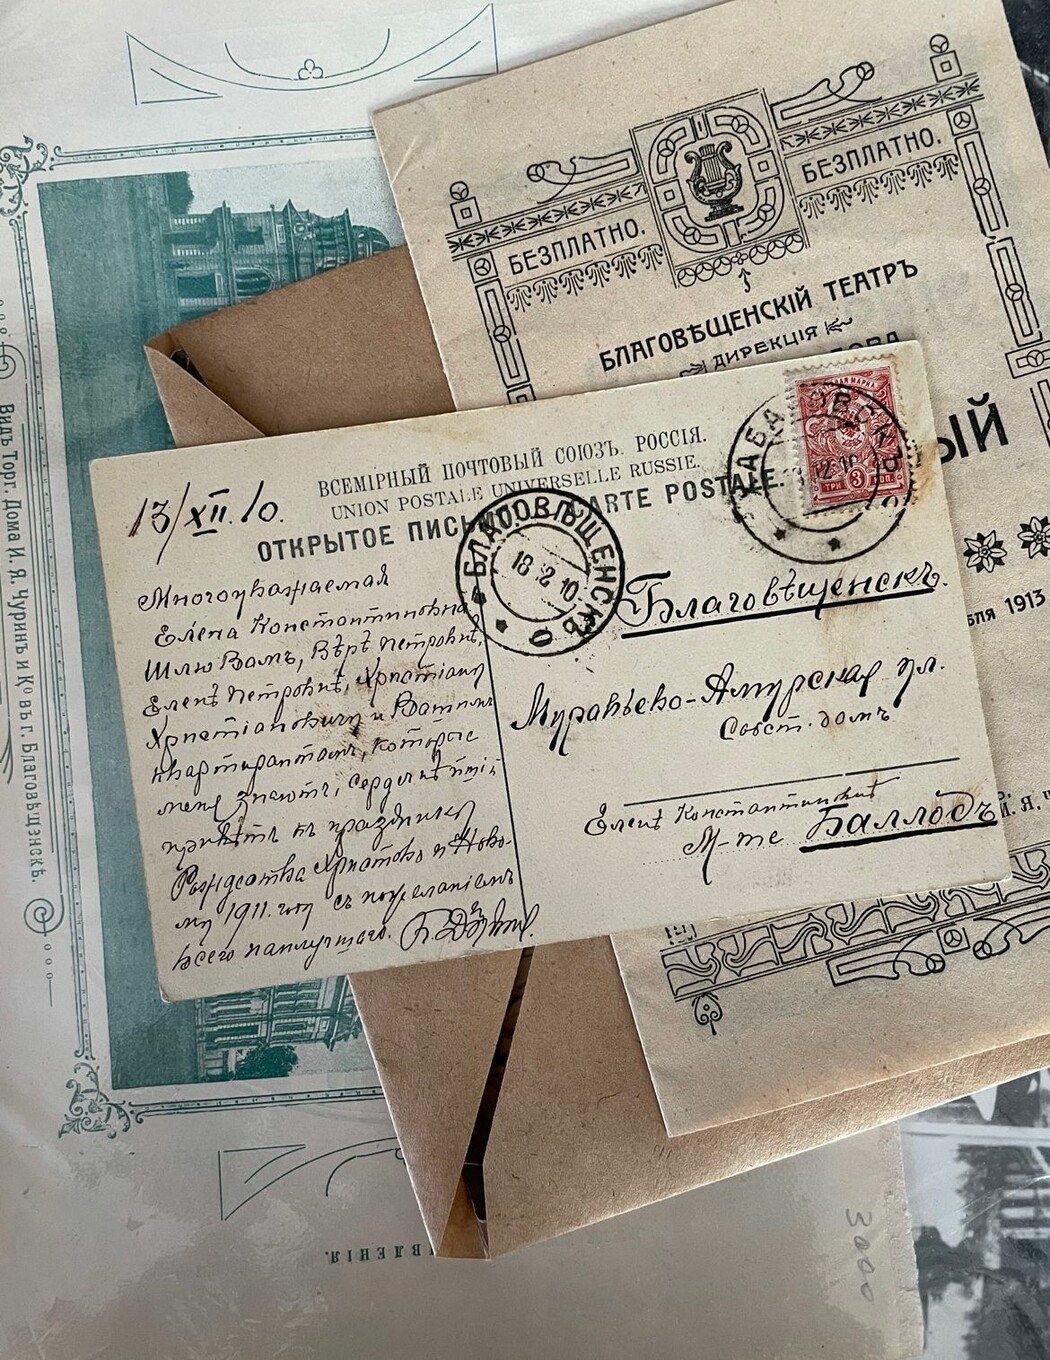 БЕЗПЛАТНО.
БЕЗПЛАТНО.
БЛАГОВѢЩЕНСКІЙ ТЕАТРЪ
ДИРЕКЦІЯ
ЫЙ
1913
ВСЕМІРНЫЙ ПОЧТОВЫЙ СОЮЗЪ. РОССІЯ.
UNION POSTALE UNIVERSELLE RUSSIE.
ОТКРЫТОЕ ПИСЬМО. CARTE POSTALE.
13/XII.10.
Многоуважаемая
Елена Константиновна,
Шлю Вамъ, Вѣрѣ Петровнѣ,
Еленѣ Петровнѣ, Христіану
Христіановичу и Вашимъ
квартирантамъ, которые
меня знаютъ, сердечнѣйшій
привѣтъ къ празднику
Рождества Христова и Ново-
му 1911. году съ пожеланіемъ
всего наилучшаго.
БЛАГОВѢЩЕНСКЪ
18 2 10
ТРИ 3 КОП.
12 10
Благовѣщенскъ.
Муравьево-Амурская ул.
Собст. домъ
Еленѣ Константиновнѣ
М-me Баллодъ
Видъ Торг. Дома И. Я. Чуринъ и Ко въ г. Благовѣщенскѣ.
3000